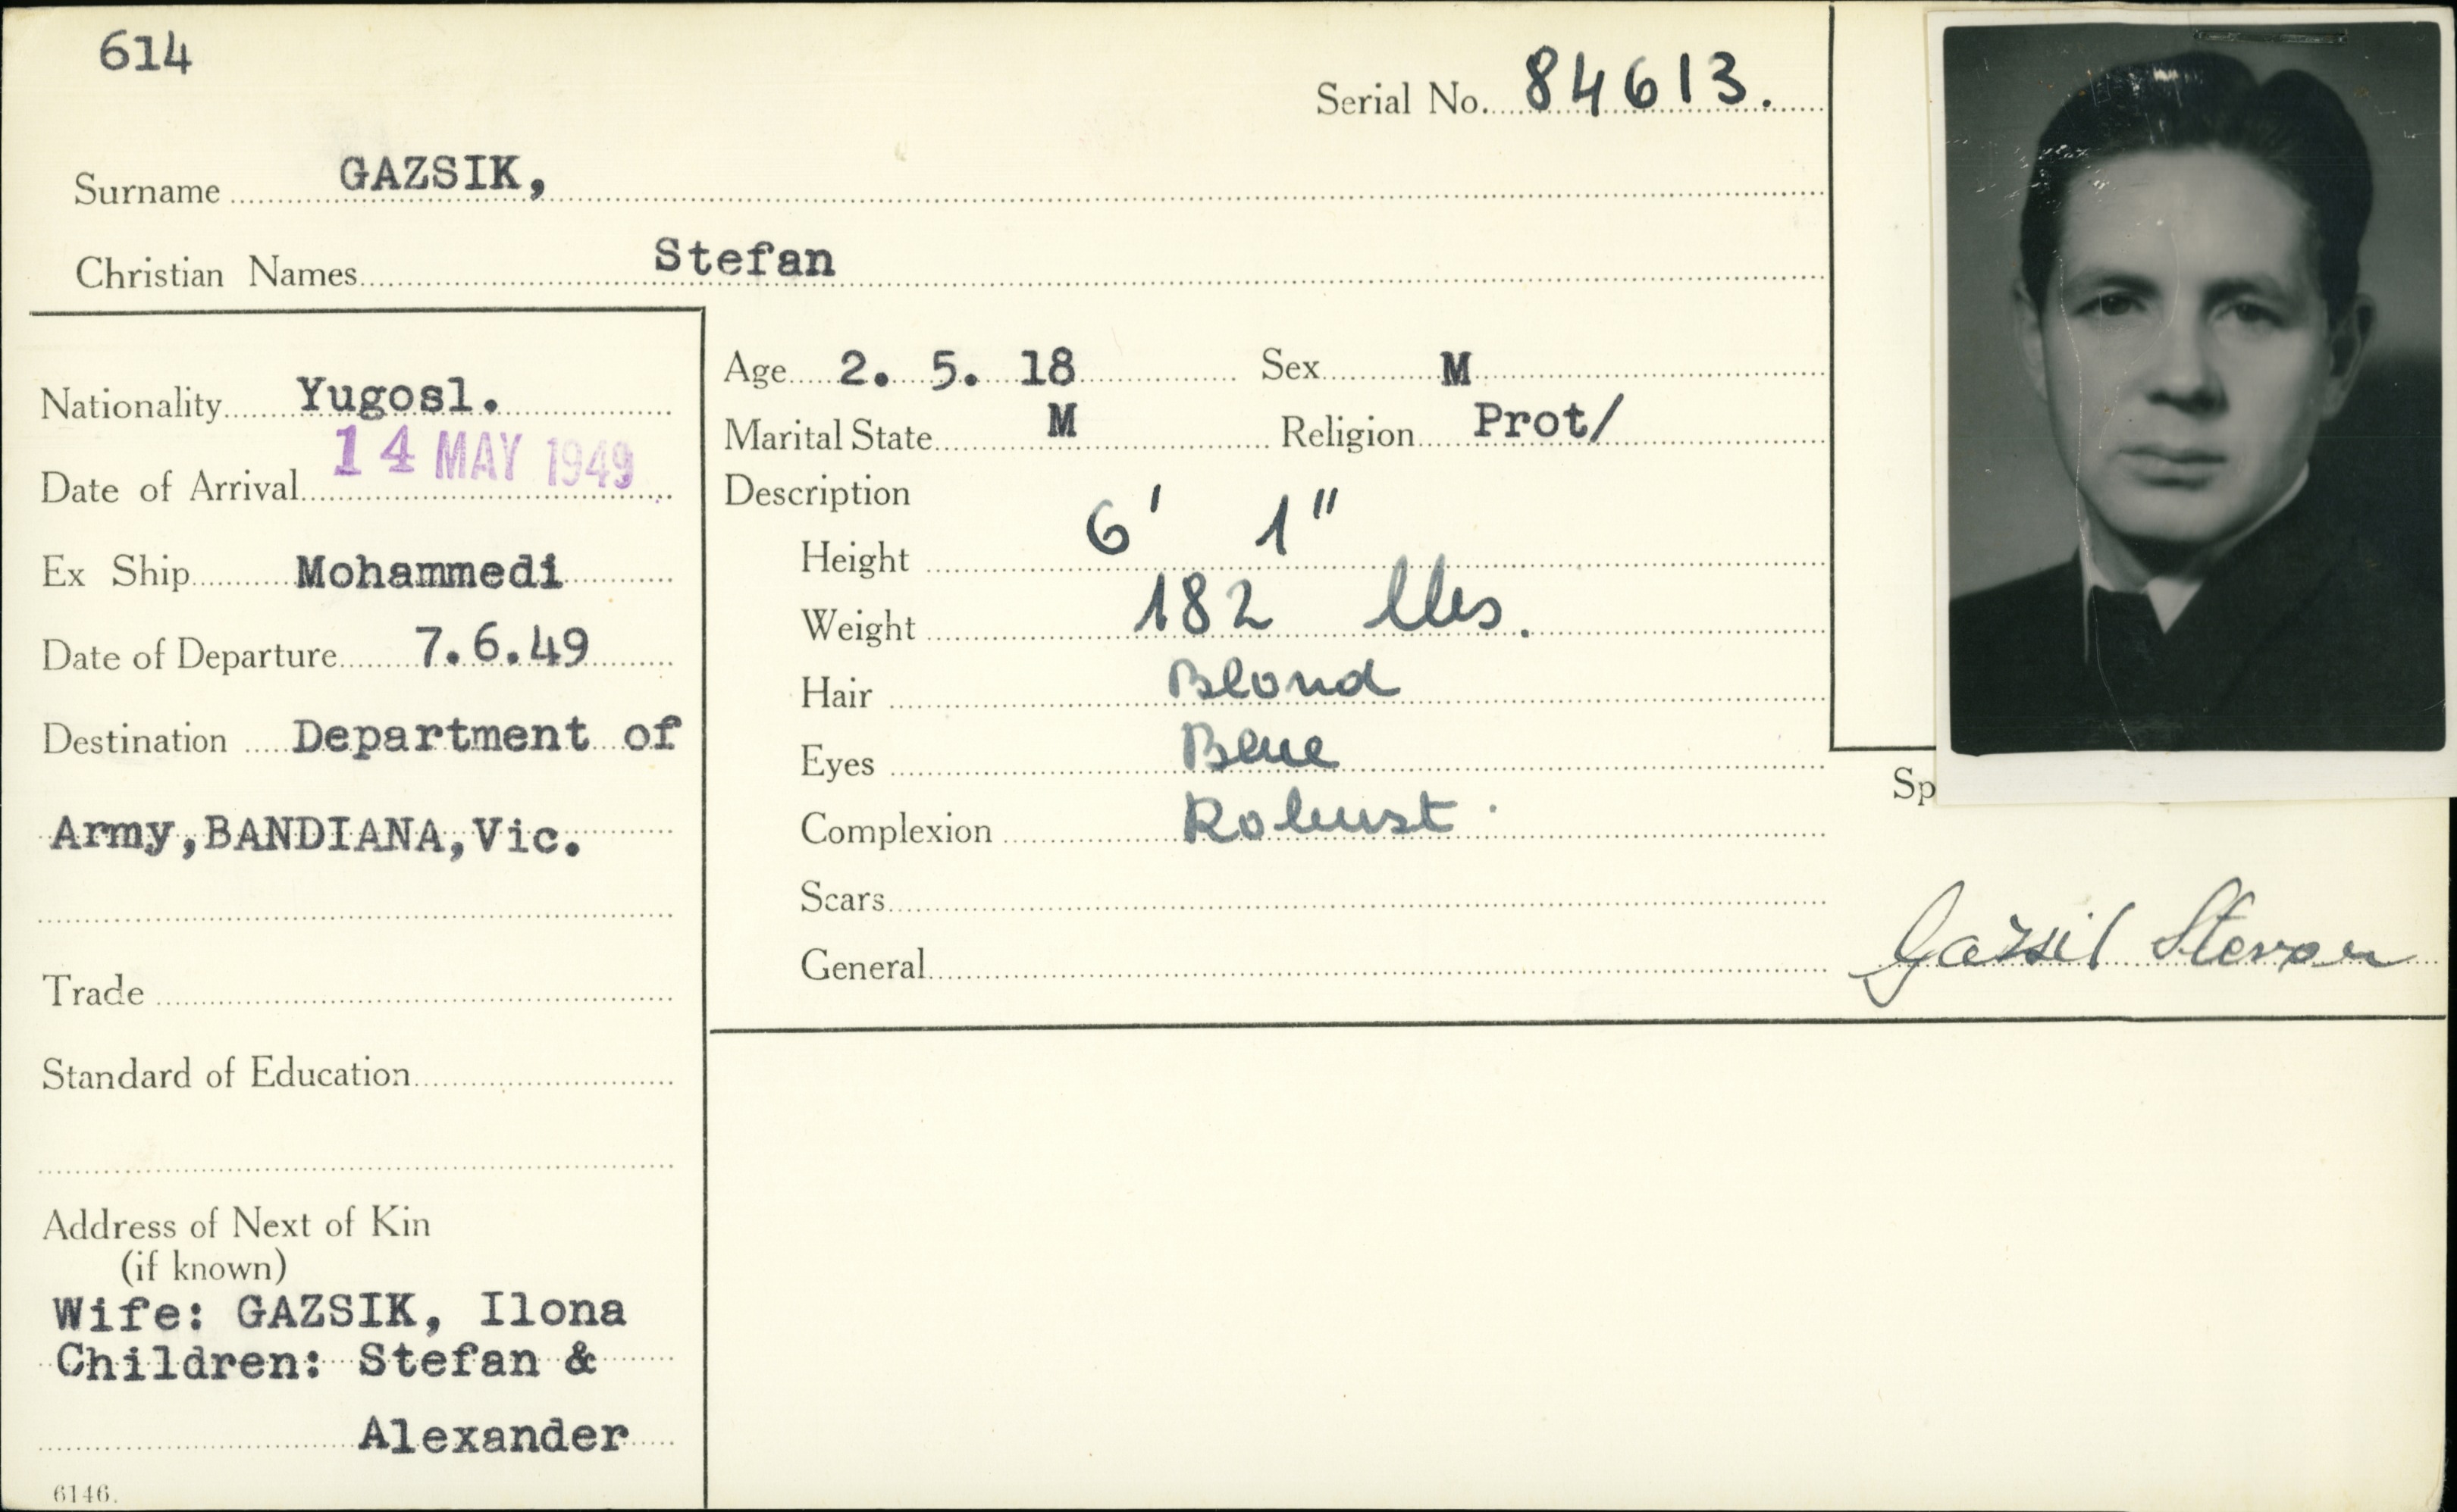 614
Serial No. 84613.
Surname GAZSIK,
Christian Names Stefan
Nationality Yugosl.
Date of Arrival 14 MAY 1949
Ex Ship Mohammedi
Date of Departure 7.6.49
Destination Department of
Army,BANDIANA,Vic.
Trade
Standard of Education
Address of Next of Kin
(if known)
Wife: GAZSIK, Ilona
Children: Stefan &
Alexander
6146.
Age 2. 5. 18 Sex M
Marital State M Religion Prot/
Description
Height 6' 1"
Weight 182 lbs.
Hair Blond
Eyes Blue
Complexion Robust
Scars
General
Sp
Gazsik Stevan